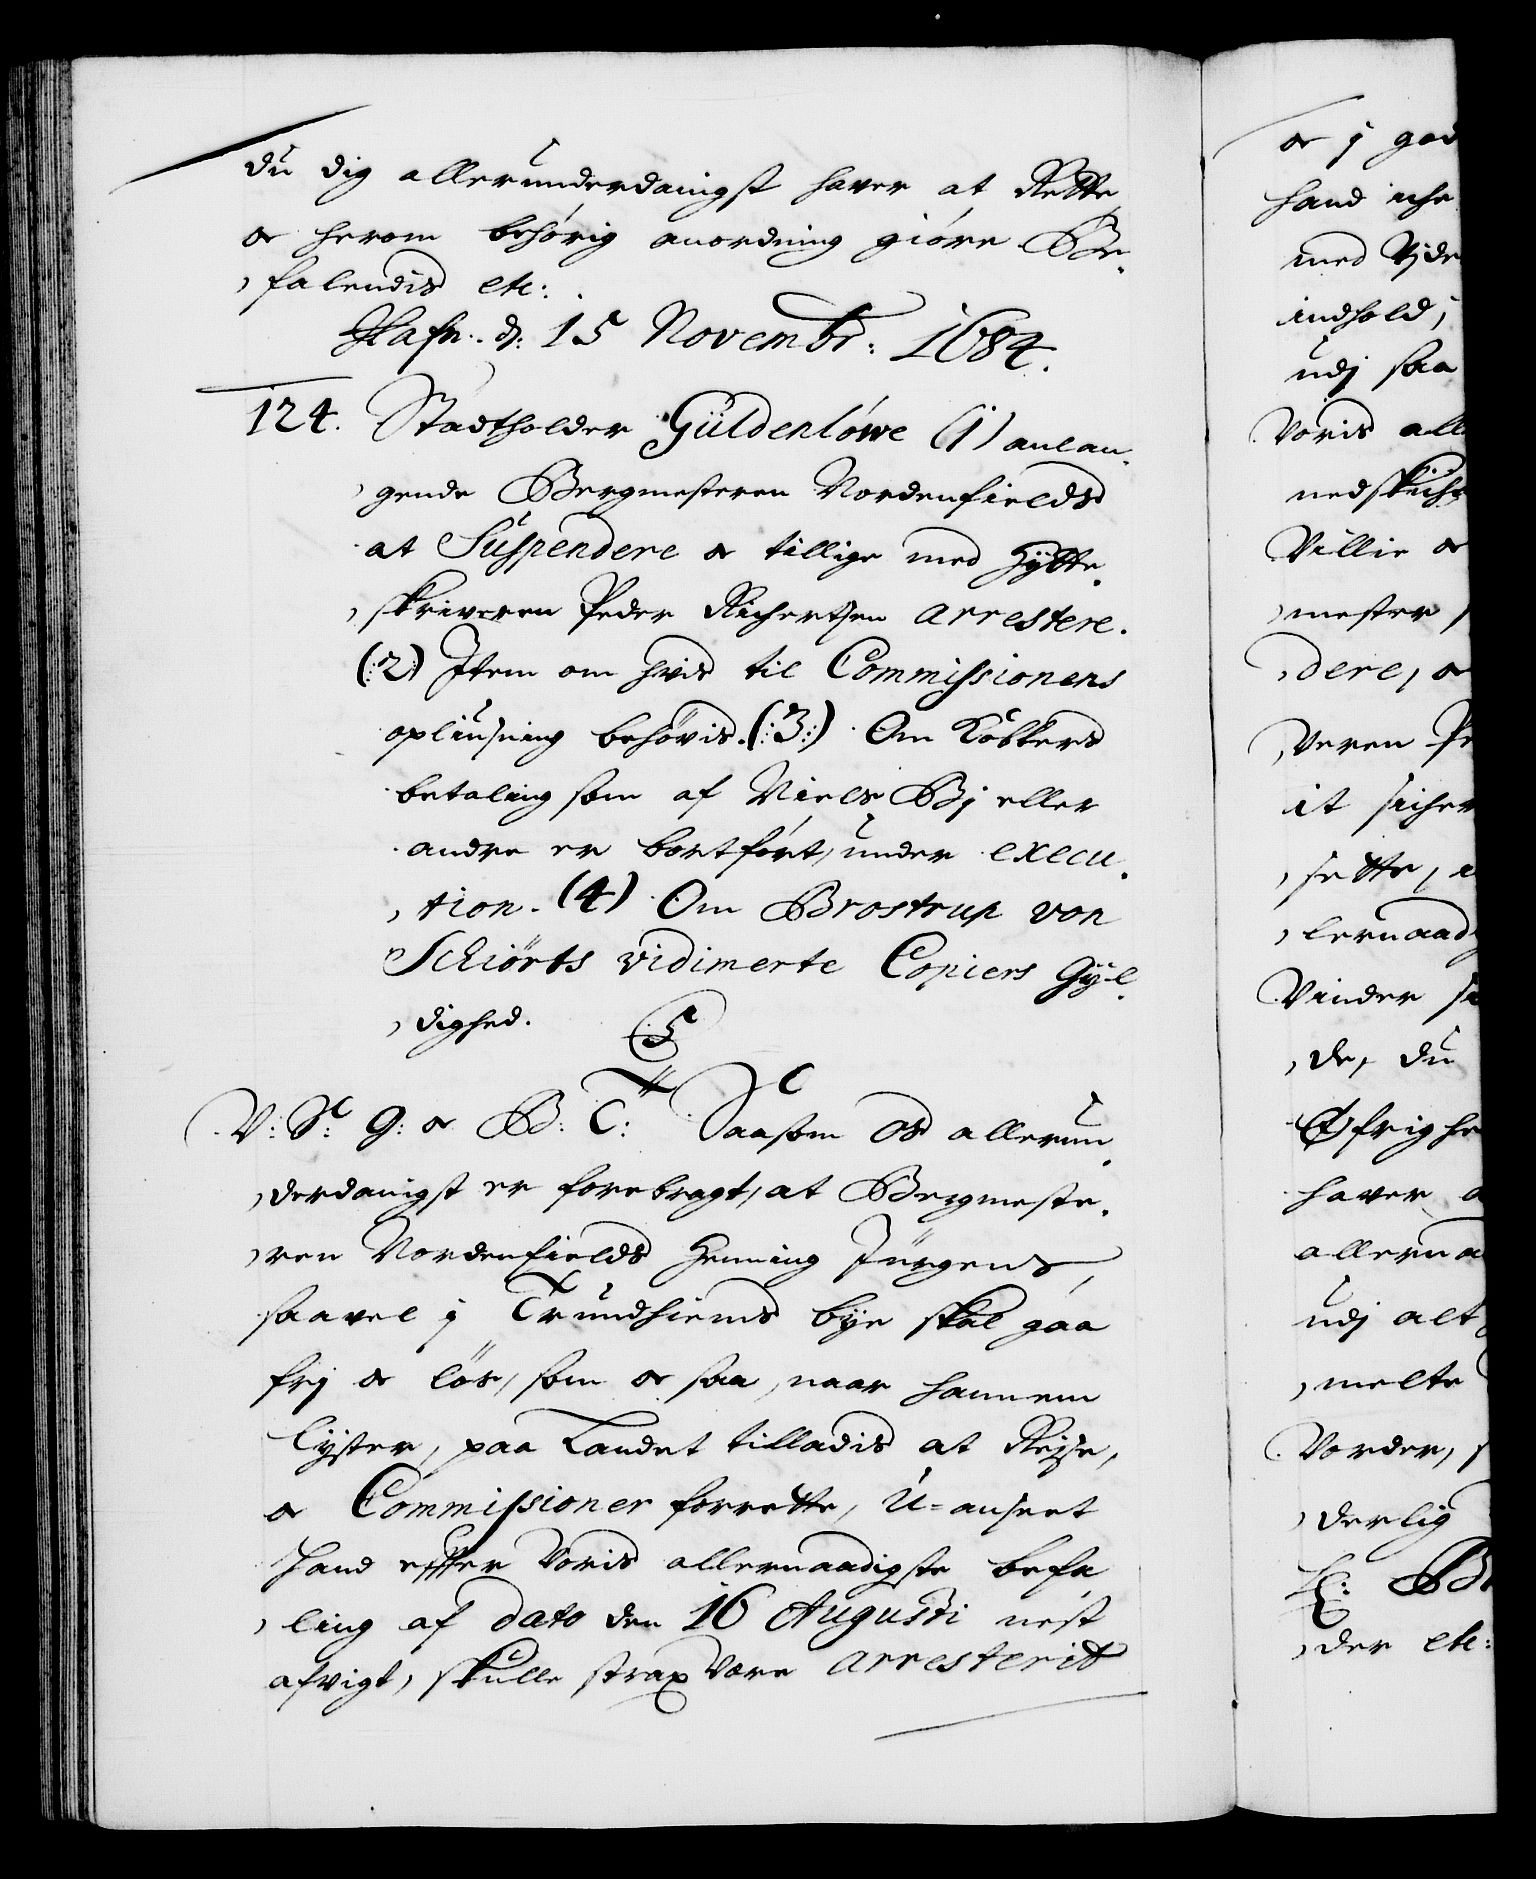 du dig allerunderdanigst haver at Rette,
oc herom behörig anordning giöre. Be,
,falendis etc:
Hafn. d: 15 Novembr: 1684.
124. Stadtholder Güldenlöwe (1) anlan,
,gende Bergmesteren Nordenfields
at Suspendere oc tillige med Hytte,
,skriveren Peder Richertsen arrestere.
(:2:) Item om hvis til Commissionens
opliusning behövis. (:3:) Om Kobbers
betaling som af Niels Bj eller
andre er bortfört, under execu,
,tion. (4) Om Brostrup von
Schiörts vidimerte Copiers Gyl,
,dighed.
C5
V: S: G: oc B: T: Saasom Os allerun,
,derdanigst er forebragt, at Bergmeste,
,ren Nordenfields Henning Jürgens,
saavel i Trundhiems bye skal gaa
frj oc lös, som oc saa, naar hannem
lyster, paa Landet tilladis at Reise,
oc Commissioner forrette, U-anseet
Hand effter Voris allernaadigste befa
,ling af dato den 16 Augusti nest
afvigt, skulle strax være arresterit
oc i god
hand icke
med Vide
indhold,
udj saa
Voris all
nedskick
Villie oc
,mester
,dere, oc
,veren Pe
it sicher
,sette,
,lernaad
Vinder
,de, du
Öfrighe
haver
allerna
udj alt
,melte
Vorder,
,derlig
Bi
,der etc: